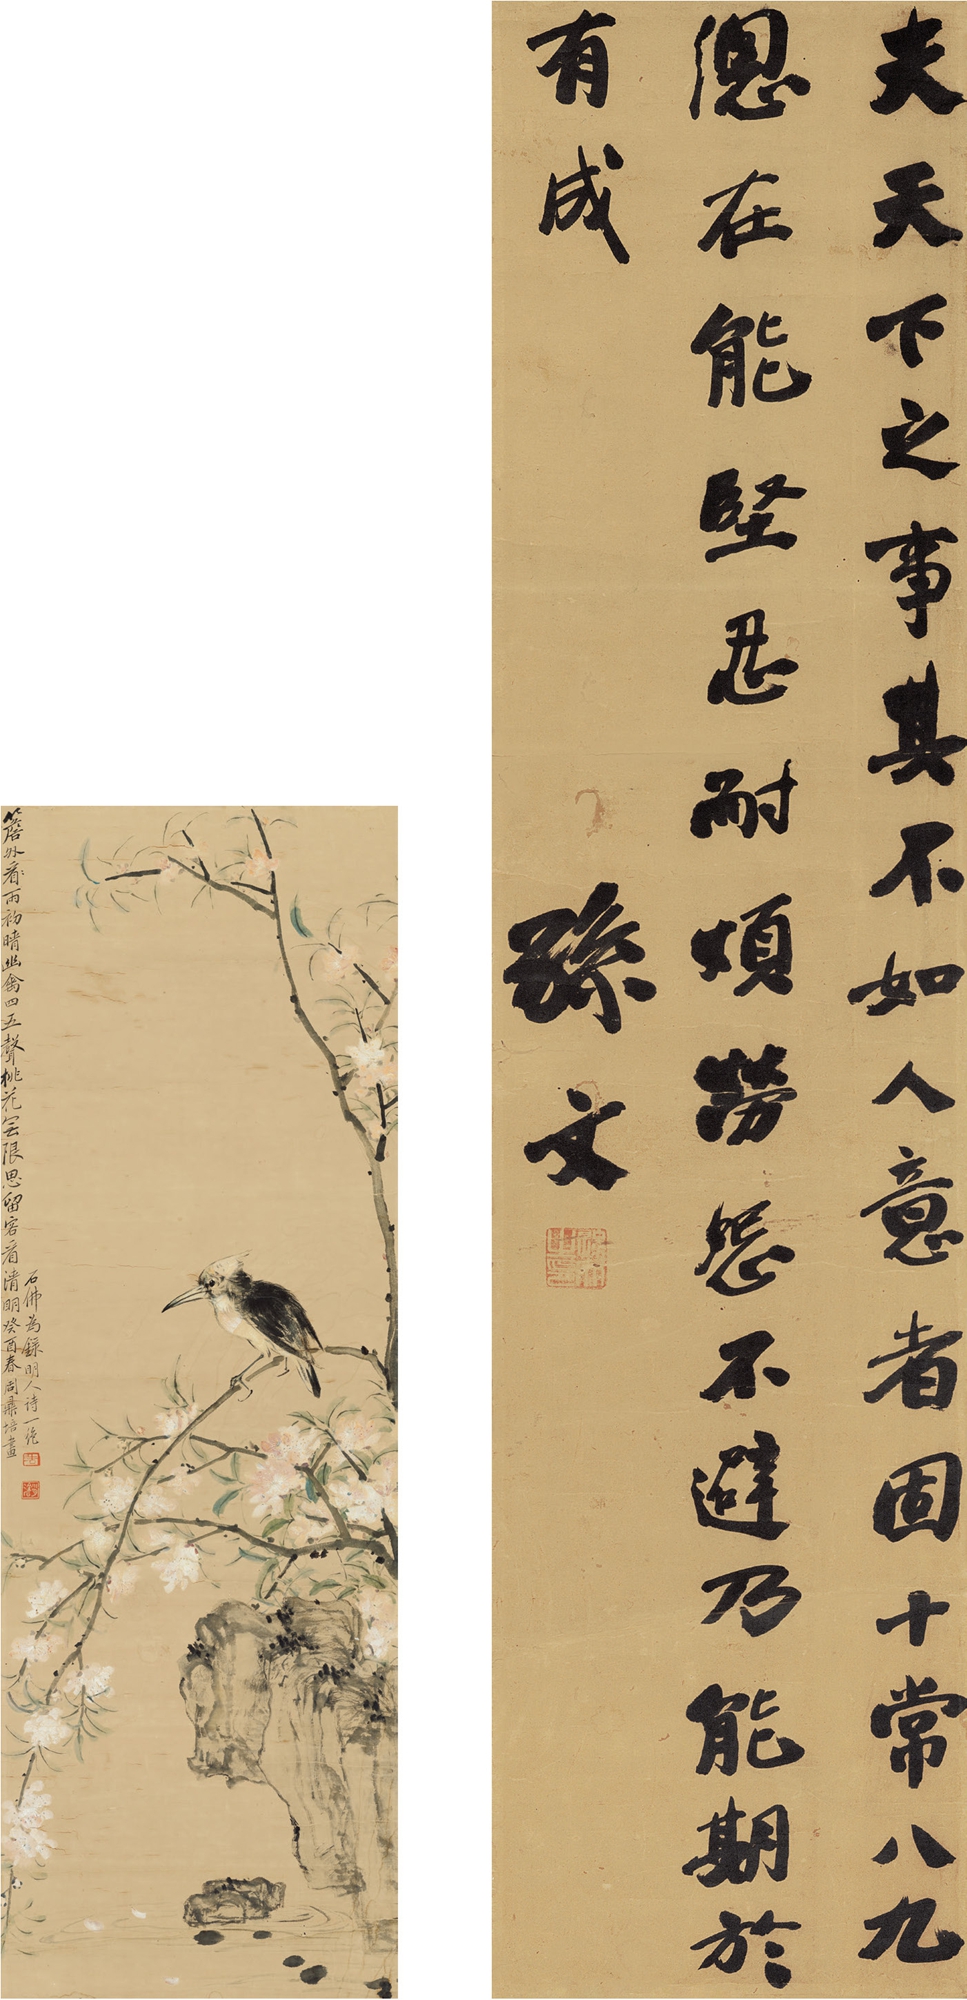 夫天下之事其不如人意者固十常八九
總在能堅忍耐煩勞怨不避乃能期於
有成
孫文
簷外看雨初晴幽禽四五聲桃花無限思留客看清明癸酉春周鼎培畫
石佛為錄明人詩一絕